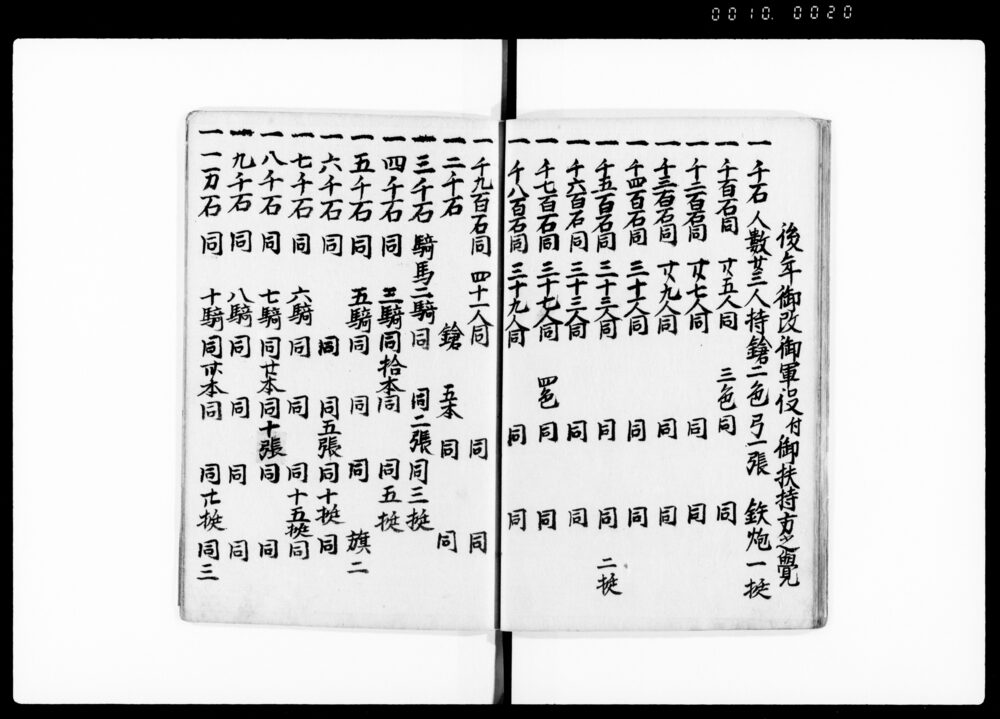 0010. 0020
後年御改御軍役付御扶持方之覺
一 千石 人數廿三人持鎗二色弓一張 鉄炮一挺
一 千百石同 廿五人同 三色同 同
一 千二百石同 廿七人同 同 同
一 千三百石同 廿九人同 同 同
一 千四百石同 三十一人同 同 同
一 千五百石同 三十三人同 同 同 二挺
一 千六百石同 三十三人同 同 同
一 千七百石同 三十七人同 四色 同 同
一 千八百石同 三十九人同 同 同
一 千九百石同 四十一人同 同 同
一 二千石 鎗 五本 同 同
一 三千石 騎馬二騎 同 同二張 同三挺
一 四千石 同 三騎 同拾本 同 同五挺
一 五千石 同 五騎 同 同 同 旗二
一 六千石 同 同 同五張 同十挺 同
一 七千石 同 六騎 同 同 同十五挺 同
一 八千石 同 七騎 同廿本 同十張 同 同
一 九千石 同 八騎 同 同 同 同
一 一万石 同 十騎 同廿本 同 同廿挺 同三